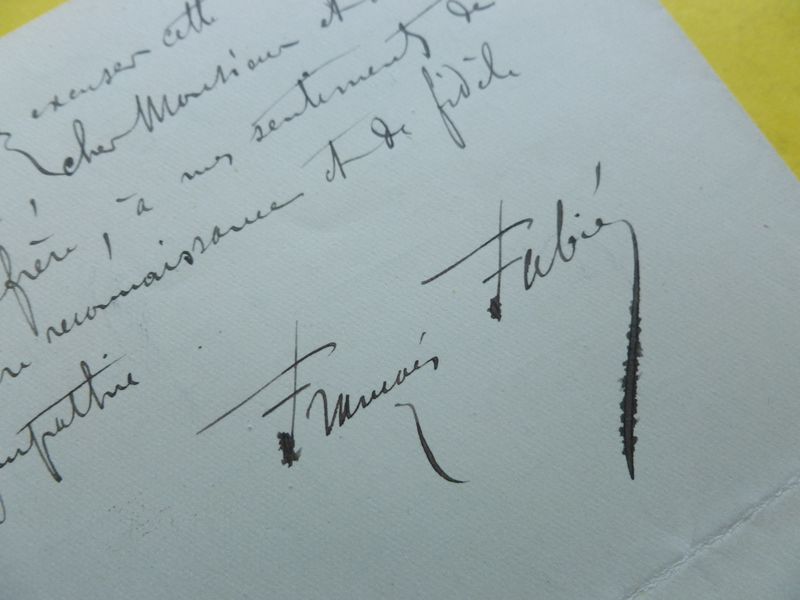 excuser cette
cher Monsieur et
frère, à mes sentiments de
reconnaissance et de fidèle
sympathie
François Fabié